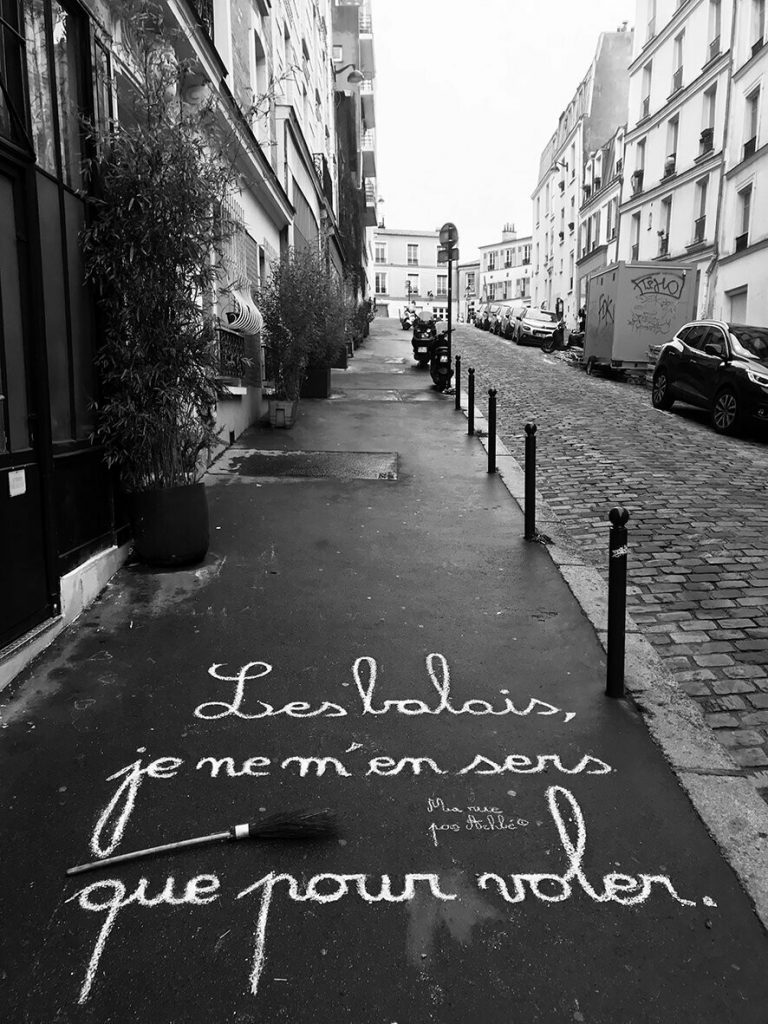 Les balais,
je ne m'en sers
Ma rue
par Achbé©
que pour voler.